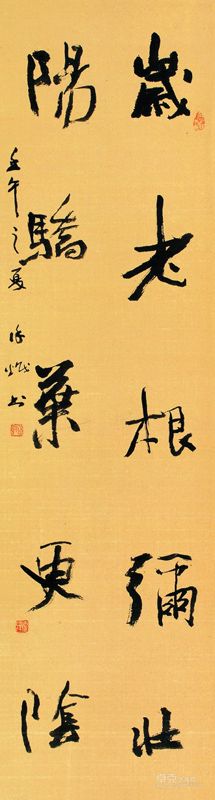 歲老根彌壯
陽驕葉更陰
壬午之夏